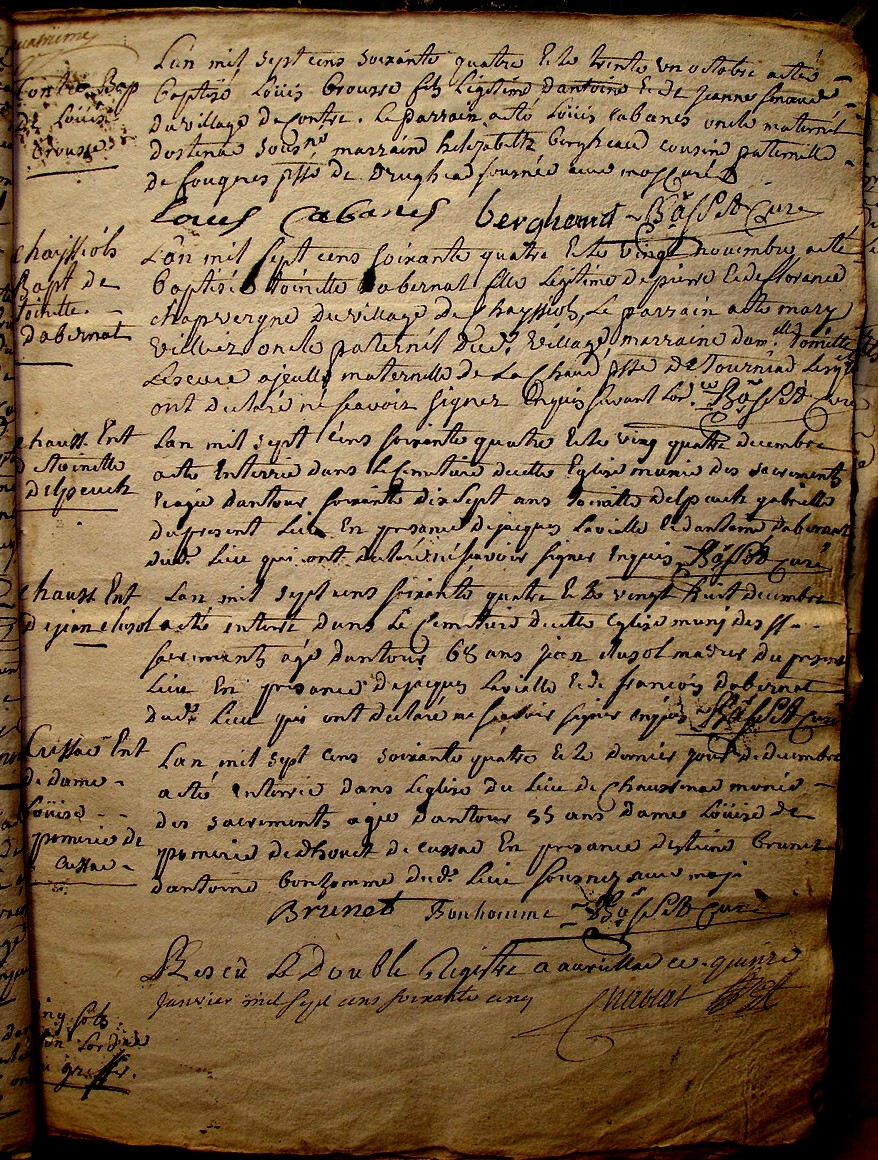 quatrieme
Contre Bap
de Louis
brousse
Lan mil sept cens soixante quatre & le trente un octobre a eté
baptisé Loüis brousse fils Legitime dantoine & de jeanne
du village de Contre. Le parrain a eté Loüis cabanes oncle maternel
marraine helizabeth bergheaud cousine paternelle
de fougeres psse de Drughac sousnée avec moy Curé
Louis Cabanes berghaud Basset Curé
Chayssiols
Bapt de
toinette
dabernat
Lan mil sept cens soixante quatre & le vingt novembre a eté
baptisée toinette dabernat fille Legitime de pierre & de florence
chapvergne du village de Chayssiols, Le parrain a eté mary
oncle paternel dud. village marraine dam.lle toinette
ajeulle maternelle de La Chaud psse de tourniad Lesq
ont declaré ne scavoir signer Enquis suivant Lord.ce Basset Curé
chauss. Ent
d toinette
delpeuch
Lan mil sept cens soixante quatre & le ving quatre decembre
a eté Enterrée dans Le Cemetiere de cette Eglise munie des sacrements
& agée dantour soixante dix sept ans toinette delpeuch gabrielle
du present Lieu En presance de jacques Lavielle & dantoine dabernat
dud. Lieu qui ont declaré ne scavoir signer enquis Basset Curé
chauss Ent
de jean clusol
Lan mil sept cens soixante quatre & le vingt huit decembre
a eté enterré dans Le Cemetiere de cette Eglise muni des ss
sacrements agé dantour 68 ans jean clusol du present
Lieu En presance de jacques Lavielle & de françois dabernat
dud. Lieu qui ont declaré ne scavoir signer enquis Basset Curé
Cussac Ent
de dame
Loüise
pomerie de
Cussac
Lan mil sept cens soixante quatre & le dernier jour de decembre
a eté Enterrée dans Leglise du Lieu de Chaussenac munie
des sacrements agée dantour 55 ans dame Loüise de
pomerie de dhouet de cussac En presance destiene brunet
dantoine bonhomme dud. Lieu sousnez avec moy
Brunet Bonhomme Basset Curé
Rescu Le Double Registre a aurillac ce quinze
janvier mil sept cens soixante cinq
cinq sols